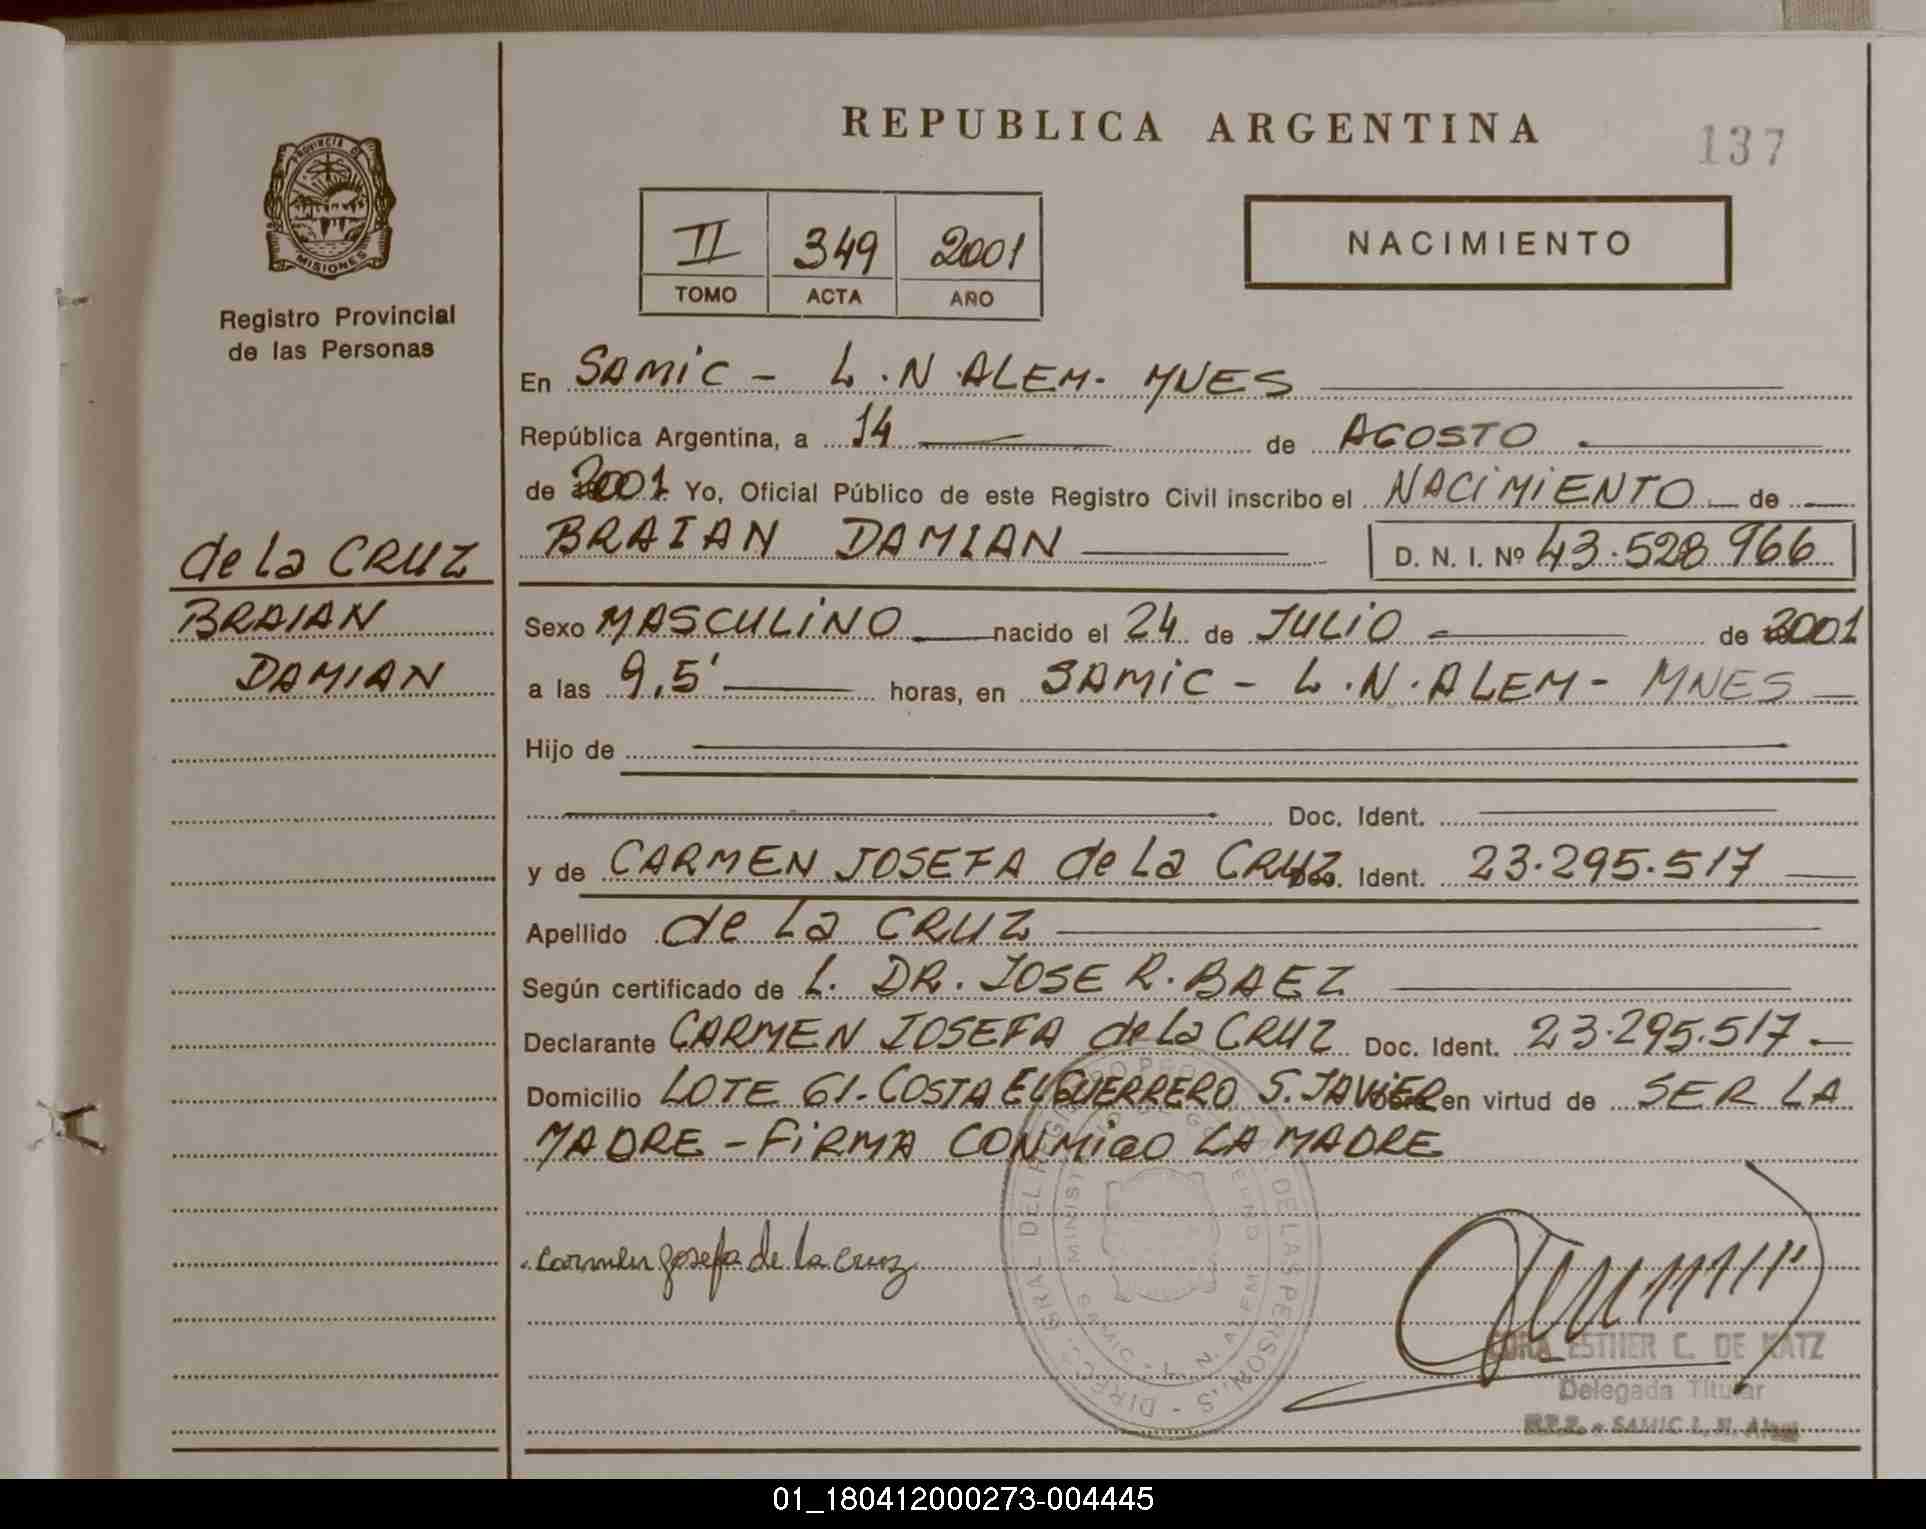 REPUBLICA ARGENTINA
137
PROVINCIA DE
MISIONES
Registro Provincial
de las Personas
II 349 2001
TOMO ACTA AÑO
NACIMIENTO
En SAMIC - L.N.ALEM- MNES
República Argentina, a 14 de AGOSTO
de 2001 Yo, Oficial Público de este Registro Civil inscribo el NACIMIENTO de
BRAIAN DAMIAN D. N. I. Nº 43.528.966
de la CRUZ
BRAIAN
DAMIAN
Sexo MASCULINO nacido el 24 de JULIO de 2001
a las 9,5' horas, en SAMIC - L.N.ALEM- MNES
Hijo de
Doc. Ident.
y de CARMEN JOSEFA de La CRUZ Doc. Ident. 23.295.517
Apellido de La CRUZ
Según certificado de L. DR. JOSE R. BAEZ
Declarante CARMEN JOSEFA de La CRUZ Doc. Ident. 23.295.517
Domicilio LOTE 61-COSTA El GUERRERO S. JAVIER Obra en virtud de SER LA
MADRE - FIRMA CONMIGO LA MADRE
carmen josefa de la cruz
CORA ESTHER C. DE KATZ
Delegada Titular
SAMIC L. N. Alem
01_180412000273-004445